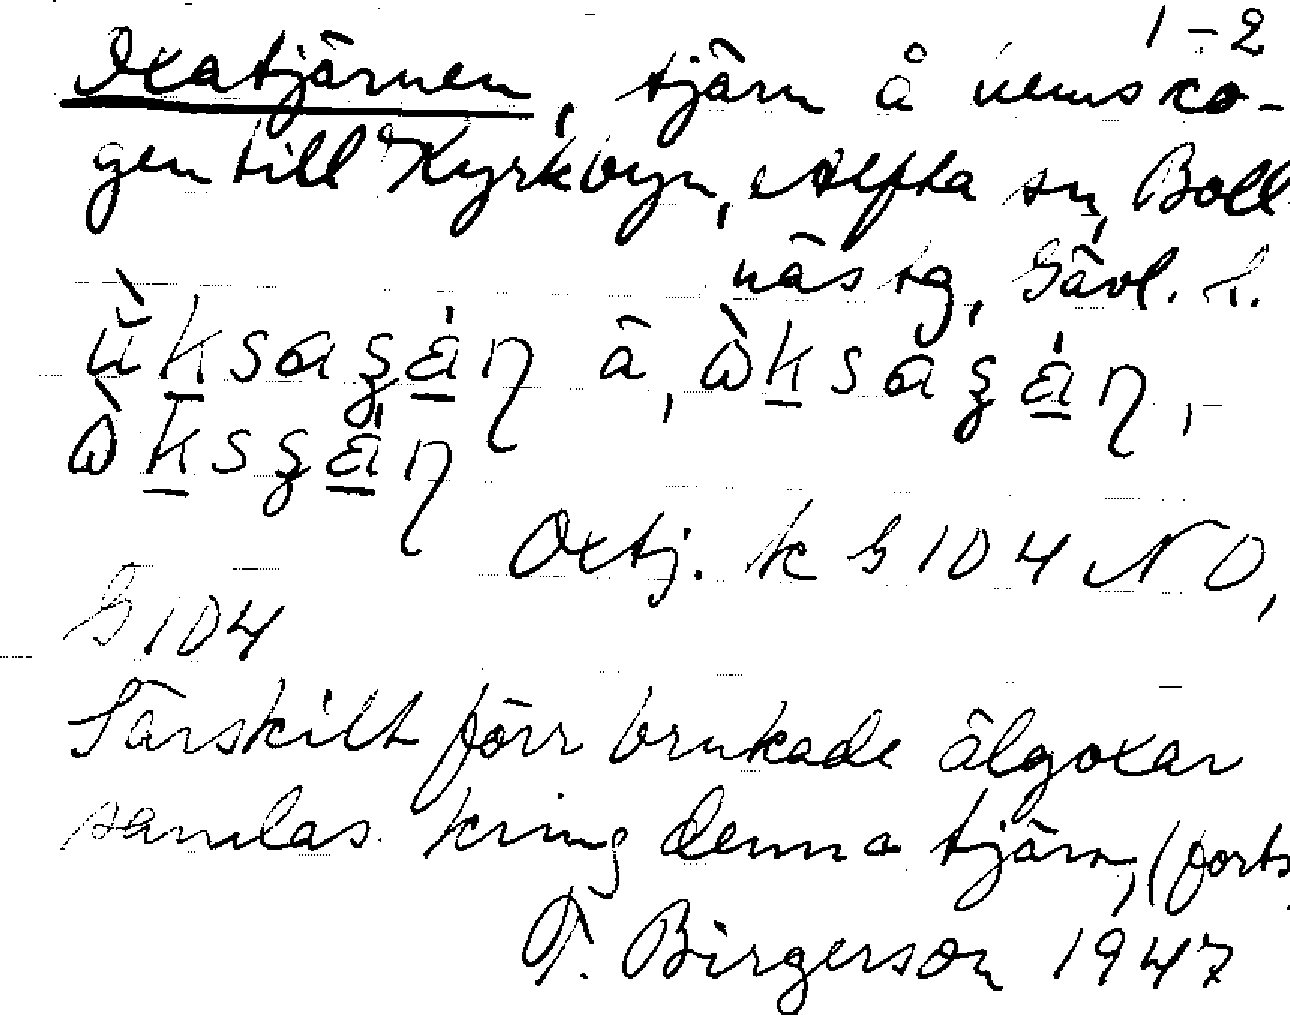 1-2
Oxatjärnen, tjärn å hemsko-
gen till Kyrkbyn, Alfta sn, Boll-
näs tg, Gävl. l.
ùksagáη ä, òksagáη,
òksgáη
Oxtj. k G 104 NO,
G 104
Särskilt förr brukade älgoxar
samlas kring denna tjärn, (forts.
T. Birgerson 1947